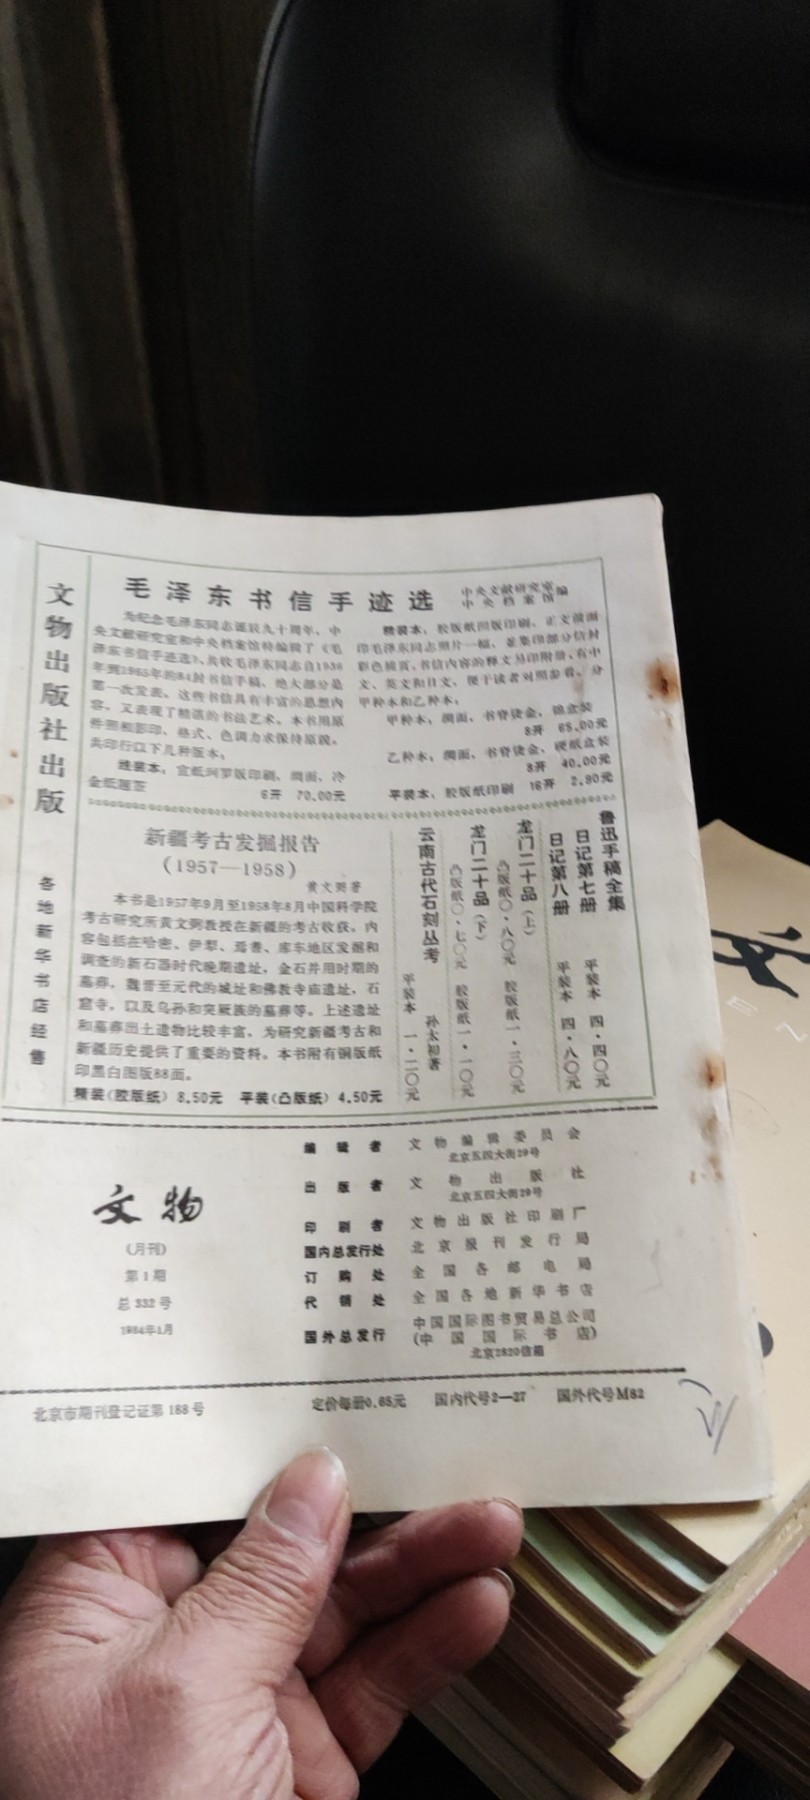 文物出版社出版
各地新华书店经售
毛泽东书信手迹选
中央文献研究室
中央档案馆
编
为纪念毛泽东同志诞辰九十周年，中
央文献研究室和中央档案馆特编辑了《毛
泽东书信手迹选》，共收毛泽东同志自1936
年到1965年的84封书信手稿，绝大部分是
第一次发表。这些书信具有丰富的思想内
容，又表现了精湛的书法艺术。本书用原
件照相影印，格式、色调力求保持原貌。
共印行以下几种版本：
线装本：宣纸珂罗版印刷，绸面，冷
金纸题签
6开 70.00元
精装本：胶版纸凹版印刷，正文前面
印毛泽东同志照片一幅，并集印部分信封
彩色插页，书信内容的释文另印附册，有中
文、英文和日文，便于读者对照参看。分
甲种本和乙种本：
甲种本：绸面，书脊烫金，锦盒装
8开 65.00元
乙种本：绸面，书脊烫金，硬纸盒装
8开 40.00元
平装本：胶版纸印刷 16开 2.90元
新疆考古发掘报告
（1957—1958）
黄文弼著
本书是1957年9月至1958年8月中国科学院
考古研究所黄文弼教授在新疆的考古收获。内
容包括在哈密、伊犁、焉耆、库车地区发掘和
调查的新石器时代晚期遗址，金石并用时期的
墓葬，魏晋至元代的城址和佛教寺庙遗址，石
窟寺，以及乌孙和突厥族的墓葬等。上述遗址
和墓葬出土遗物比较丰富，为研究新疆考古和
新疆历史提供了重要的资料。本书附有铜版纸
印黑白图版88面。
精装（胶版纸）8.50元 平装（凸版纸）4.50元
鲁迅手稿全集
日记第七册 平装本 四·四〇元
日记第八册 平装本 四·八〇元
龙门二十品（上）
凸版纸〇·八〇元 胶版纸一·三〇元
龙门二十品（下）
凸版纸〇·七〇元 胶版纸一·一〇元
云南古代石刻丛考
孙太初著
平装本 一·二〇元
文物
（月刊）
第1期
总332号
1984年1月
编辑者 文物编辑委员会
北京五四大街29号
出版者 文物出版社
北京五四大街29号
印刷者 文物出版社印刷厂
国内总发行处 北京报刊发行局
订购处 全国各邮电局
代销处 全国各地新华书店
国外总发行 中国国际图书贸易总公司
（中国国际书店）
北京2820信箱
北京市期刊登记证第188号 定价每册0.65元 国内代号2—27 国外代号M82